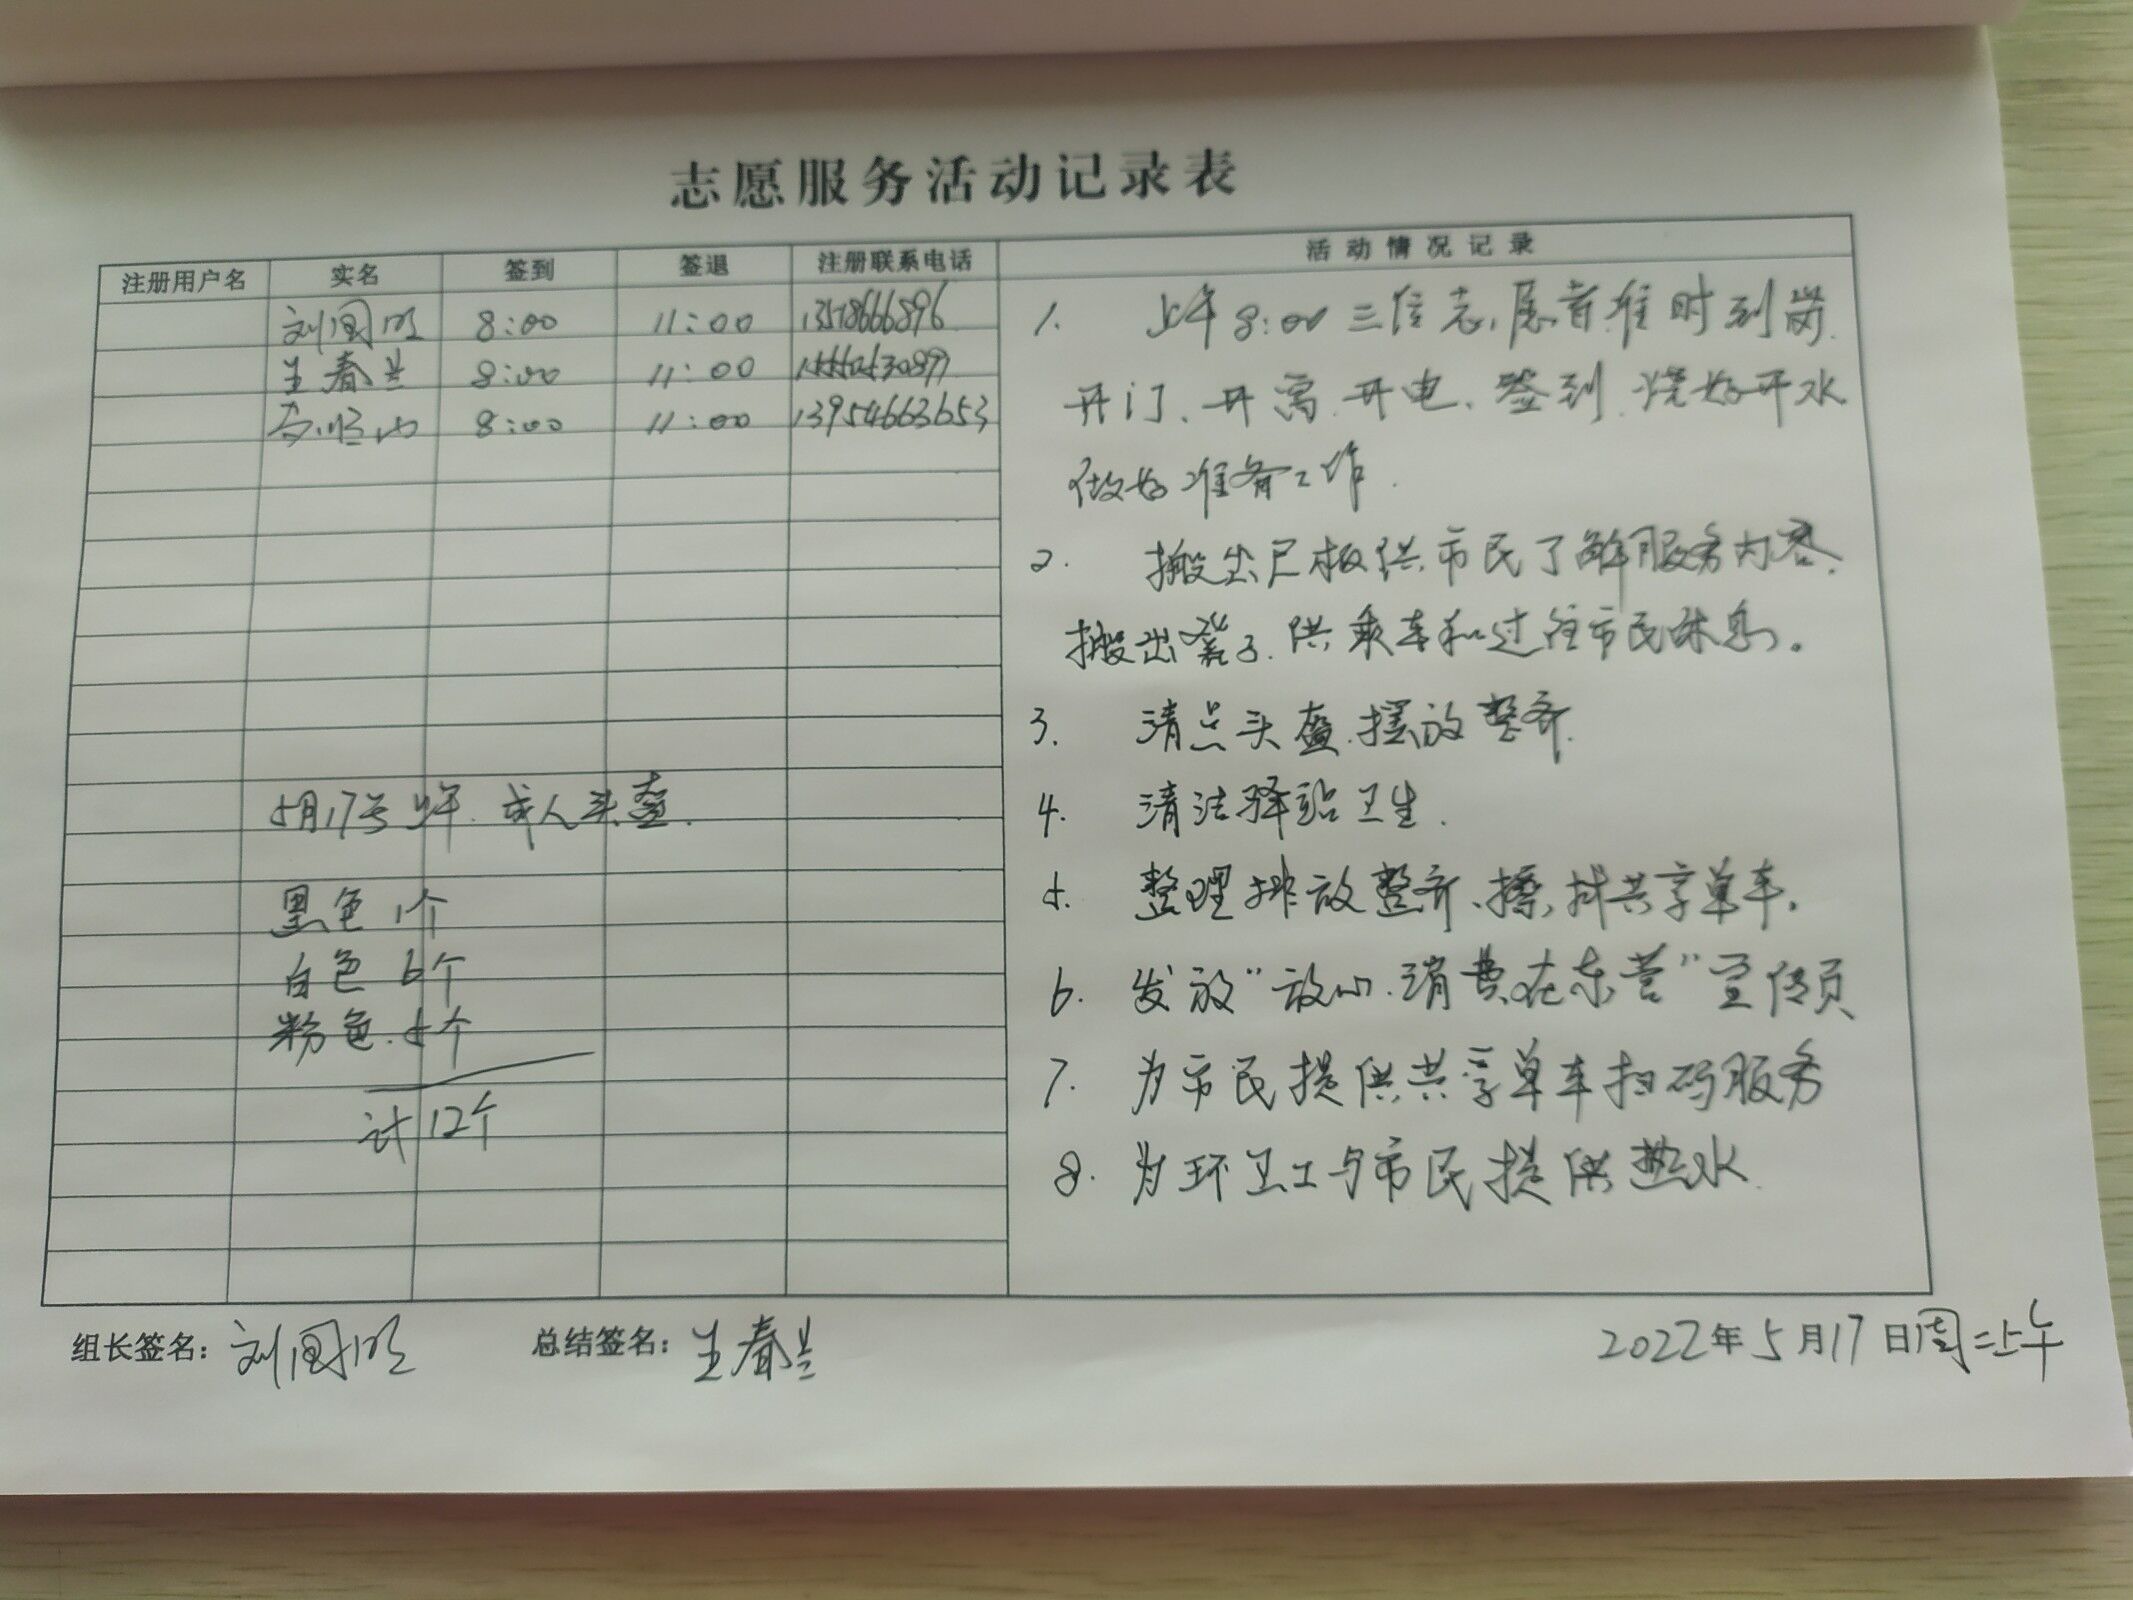 志愿服务活动记录表
注册用户名 实名 签到 签退 注册联系电话 活动情况记录
刘国明 8:00 11:00 13578666896
王春兰 8:00 11:00
8:00 11:00 13954663653
5月17号上午.成人头盔.
黑色 1个
白色 6个
粉色.5个
计12个
1. 上午8:00三位志愿者准时到岗.
开门、开窗.开电、签到.烧好开水
做好准备工作.
2. 搬出展板供市民了解服务内容.
搬出凳子.供乘车和过往市民休息。
3. 清点头盔.摆放整齐.
4. 清洁驿站卫生.
5. 整理排放整齐、擦拭共享单车.
6. 发放"放心消费在东营"宣传页
7. 为市民提供共享单车扫码服务
8. 为环卫工与市民提供热水.
组长签名:刘国明 总结签名:王春兰 2022年5月17日周二上午